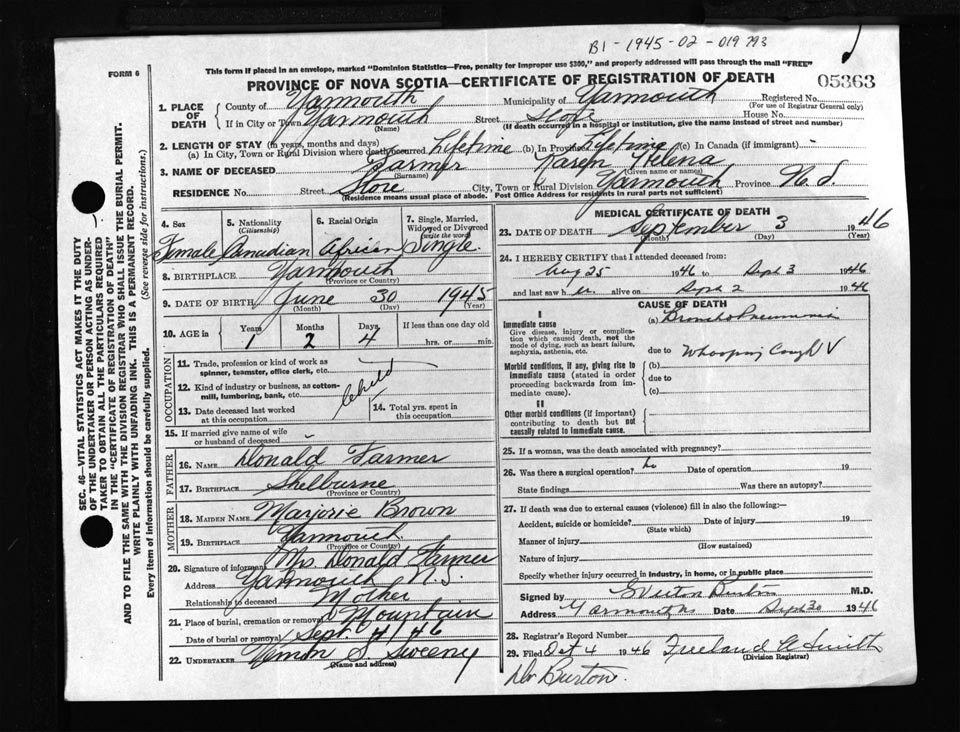 B1 - 1945 - 02 - 019793
FORM 6
This form if placed in an envelope, marked "Dominion Statistics—Free, penalty for improper use $300," and properly addressed will pass through the mail "FREE"
PROVINCE OF NOVA SCOTIA—CERTIFICATE OF REGISTRATION OF DEATH
05363
1. PLACE OF DEATH
County of Yarmouth Municipality of Yarmouth Registered No.
(For use of Registrar General only)
If in City or Town Yarmouth Street House No.
(Name) (If death occurred in a hospital or institution, give the name instead of street and number)
2. LENGTH OF STAY (in years, months and days)
(a) In City, Town or Rural Division where death occurred Lifetime (b) In Province Lifetime (c) In Canada (if immigrant) -
3. NAME OF DECEASED Farmer Helena
(Surname) (Given name or names)
RESIDENCE No. Street City, Town or Rural Division Yarmouth Province N.S.
(Residence means usual place of abode. Post Office Address for residents in rural parts not sufficient)
4. Sex
Female
5. Nationality
(Citizenship)
Canadian
6. Racial Origin
African
7. Single, Married, Widowed or Divorced
(write the word)
Single
8. BIRTHPLACE Yarmouth
(Province or Country)
9. DATE OF BIRTH June 30 1945
(Month) (Day) (Year)
10. AGE in
Years 1
Months 2
Days 4
If less than one day old
hrs. or min.
OCCUPATION
11. Trade, profession or kind of work as
spinner, teamster, office clerk, etc.
12. Kind of industry or business, as cotton-
mill, lumbering, bank, etc.
Child
13. Date deceased last worked
at this occupation
14. Total yrs. spent in
this occupation
15. If married give name of wife
or husband of deceased -
FATHER
16. NAME Donald Farmer
17. BIRTHPLACE Shelburne
(Province or Country)
MOTHER
18. MAIDEN NAME Marjorie Brown
19. BIRTHPLACE Yarmouth
(Province or Country)
20. Signature of informant Mrs. Donald Farmer
Address Yarmouth N.S.
Relationship to deceased Mother
21. Place of burial, cremation or removal Mountain
Date of burial or removal Sept. 4/46
22. UNDERTAKER Vernon S. Sweeny
(Name and address)
MEDICAL CERTIFICATE OF DEATH
23. DATE OF DEATH September 3 1946
(Month) (Day) (Year)
24. I HEREBY CERTIFY that I attended deceased from:
Aug 25 1946 to Sept 3 1946
and last saw her alive on Sept 2 1946
CAUSE OF DEATH
I
Immediate cause
Give disease, injury or complica-
tion which caused death, not the
mode of dying, such as heart failure,
asphyxia, asthenia, etc.
(a) Broncho Pneumonia
due to Whooping Cough V
Morbid conditions, if any, giving rise to
immediate cause (stated in order
proceeding backwards from im-
mediate cause).
(b)
due to
(c)
II
Other morbid conditions (if important)
contributing to death but not
causally related to immediate cause.
25. If a woman, was the death associated with pregnancy?
26. Was there a surgical operation? no Date of operation 19
State findings Was there an autopsy?
27. If death was due to external causes (violence) fill in also the following:—
Accident, suicide or homicide? Date of injury 19
(State which)
Manner of injury
(How sustained)
Nature of injury
Specify whether injury occurred in industry, in home, or in public place
Signed by Burton M.D.
Address Yarmouth NS Date Sept 30 1946
28. Registrar's Record Number
29. Filed Oct 4 1946 Smith
(Division Registrar)
Dr Burton.
SEC. 46—VITAL STATISTICS ACT MAKES IT THE DUTY
OF THE UNDERTAKER OR PERSON ACTING AS UNDER-
TAKER TO OBTAIN ALL THE PARTICULARS REQUIRED
IN THE "CERTIFICATE OF REGISTRATION OF DEATH"
AND TO FILE THE SAME WITH THE DIVISION REGISTRAR WHO SHALL ISSUE THE BURIAL PERMIT.
WRITE PLAINLY WITH UNFADING INK. THIS IS A PERMANENT RECORD.
Every item of information should be carefully supplied. (See reverse side for instructions.)